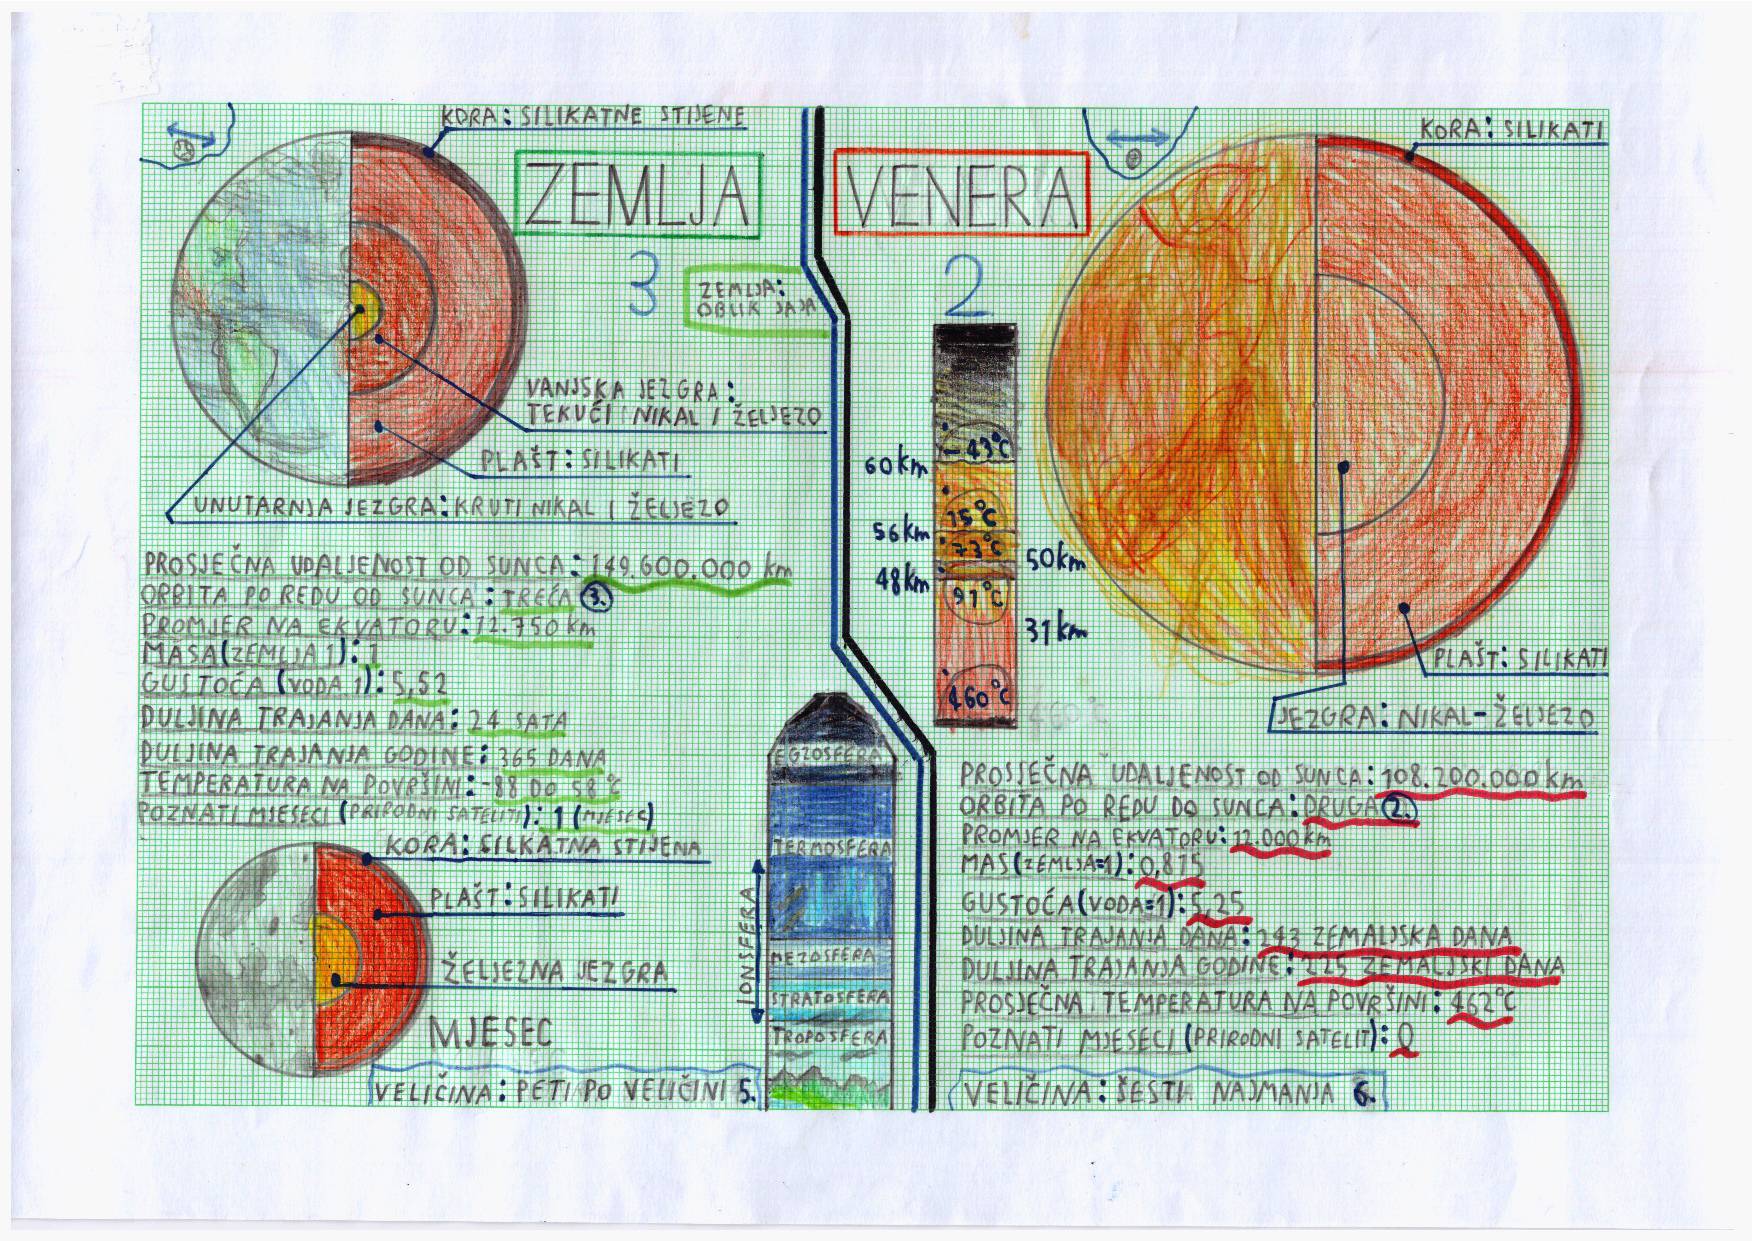 KORA: SILIKATNE STIJENE
ZEMLJA
3
ZEMLJA:
OBLIK JAJA
VANJSKA JEZGRA:
TEKUĆI NIKAL I ŽELJEZO
PLAŠT: SILIKATI
UNUTARNJA JEZGRA: KRUTI NIKAL I ŽELJEZO
PROSJEČNA UDALJENOST OD SUNCA: 149.600.000 km
ORBITA PO REDU OD SUNCA: TREĆA 3.
PROMJER NA EKVATORU: 12.750 km
MASA (ZEMLJA 1): 1
GUSTOĆA (VODA 1): 5,52
DULJINA TRAJANJA DANA: 24 SATA
DULJINA TRAJANJA GODINE: 365 DANA
TEMPERATURA NA POVRŠINI: -88 DO 58°C
POZNATI MJESECI (PRIRODNI SATELITI): 1 (MJESEC)
KORA: SILKATNA STIJENA
PLAŠT: SILIKATI
ŽELJEZNA JEZGRA
MJESEC
VELIČINA: PETI PO VELIČINI 5.
EGZOSFERA
TERMOSFERA
JONSFERA
MEZOSFERA
STRATOSFERA
TROPOSFERA
VENERA
2
KORA: SILIKATI
-43°C
60 km
15°C
56 km
73°C
50 km
48 km
91°C
31 km
460°C
460°C
PLAŠT: SILIKATI
JEZGRA: NIKAL-ŽELJEZO
PROSJEČNA UDALJENOST OD SUNCA: 108.200.000 km
ORBITA PO REDU DO SUNCA: DRUGA 2.
PROMJER NA EKVATORU: 12.000 km
MAS (ZEMLJA=1): 0,815
GUSTOĆA (VODA=1): 5,25
DULJINA TRAJANJA DANA: 243 ZEMALJSKA DANA
DULJINA TRAJANJA GODINE: 225 ZEMALJSKI DANA
PROSJEČNA TEMPERATURA NA POVRŠINI: 462°C
POZNATI MJESECI (PRIRODNI SATELIT): 0
VELIČINA: ŠESTA NAJMANJA 6.